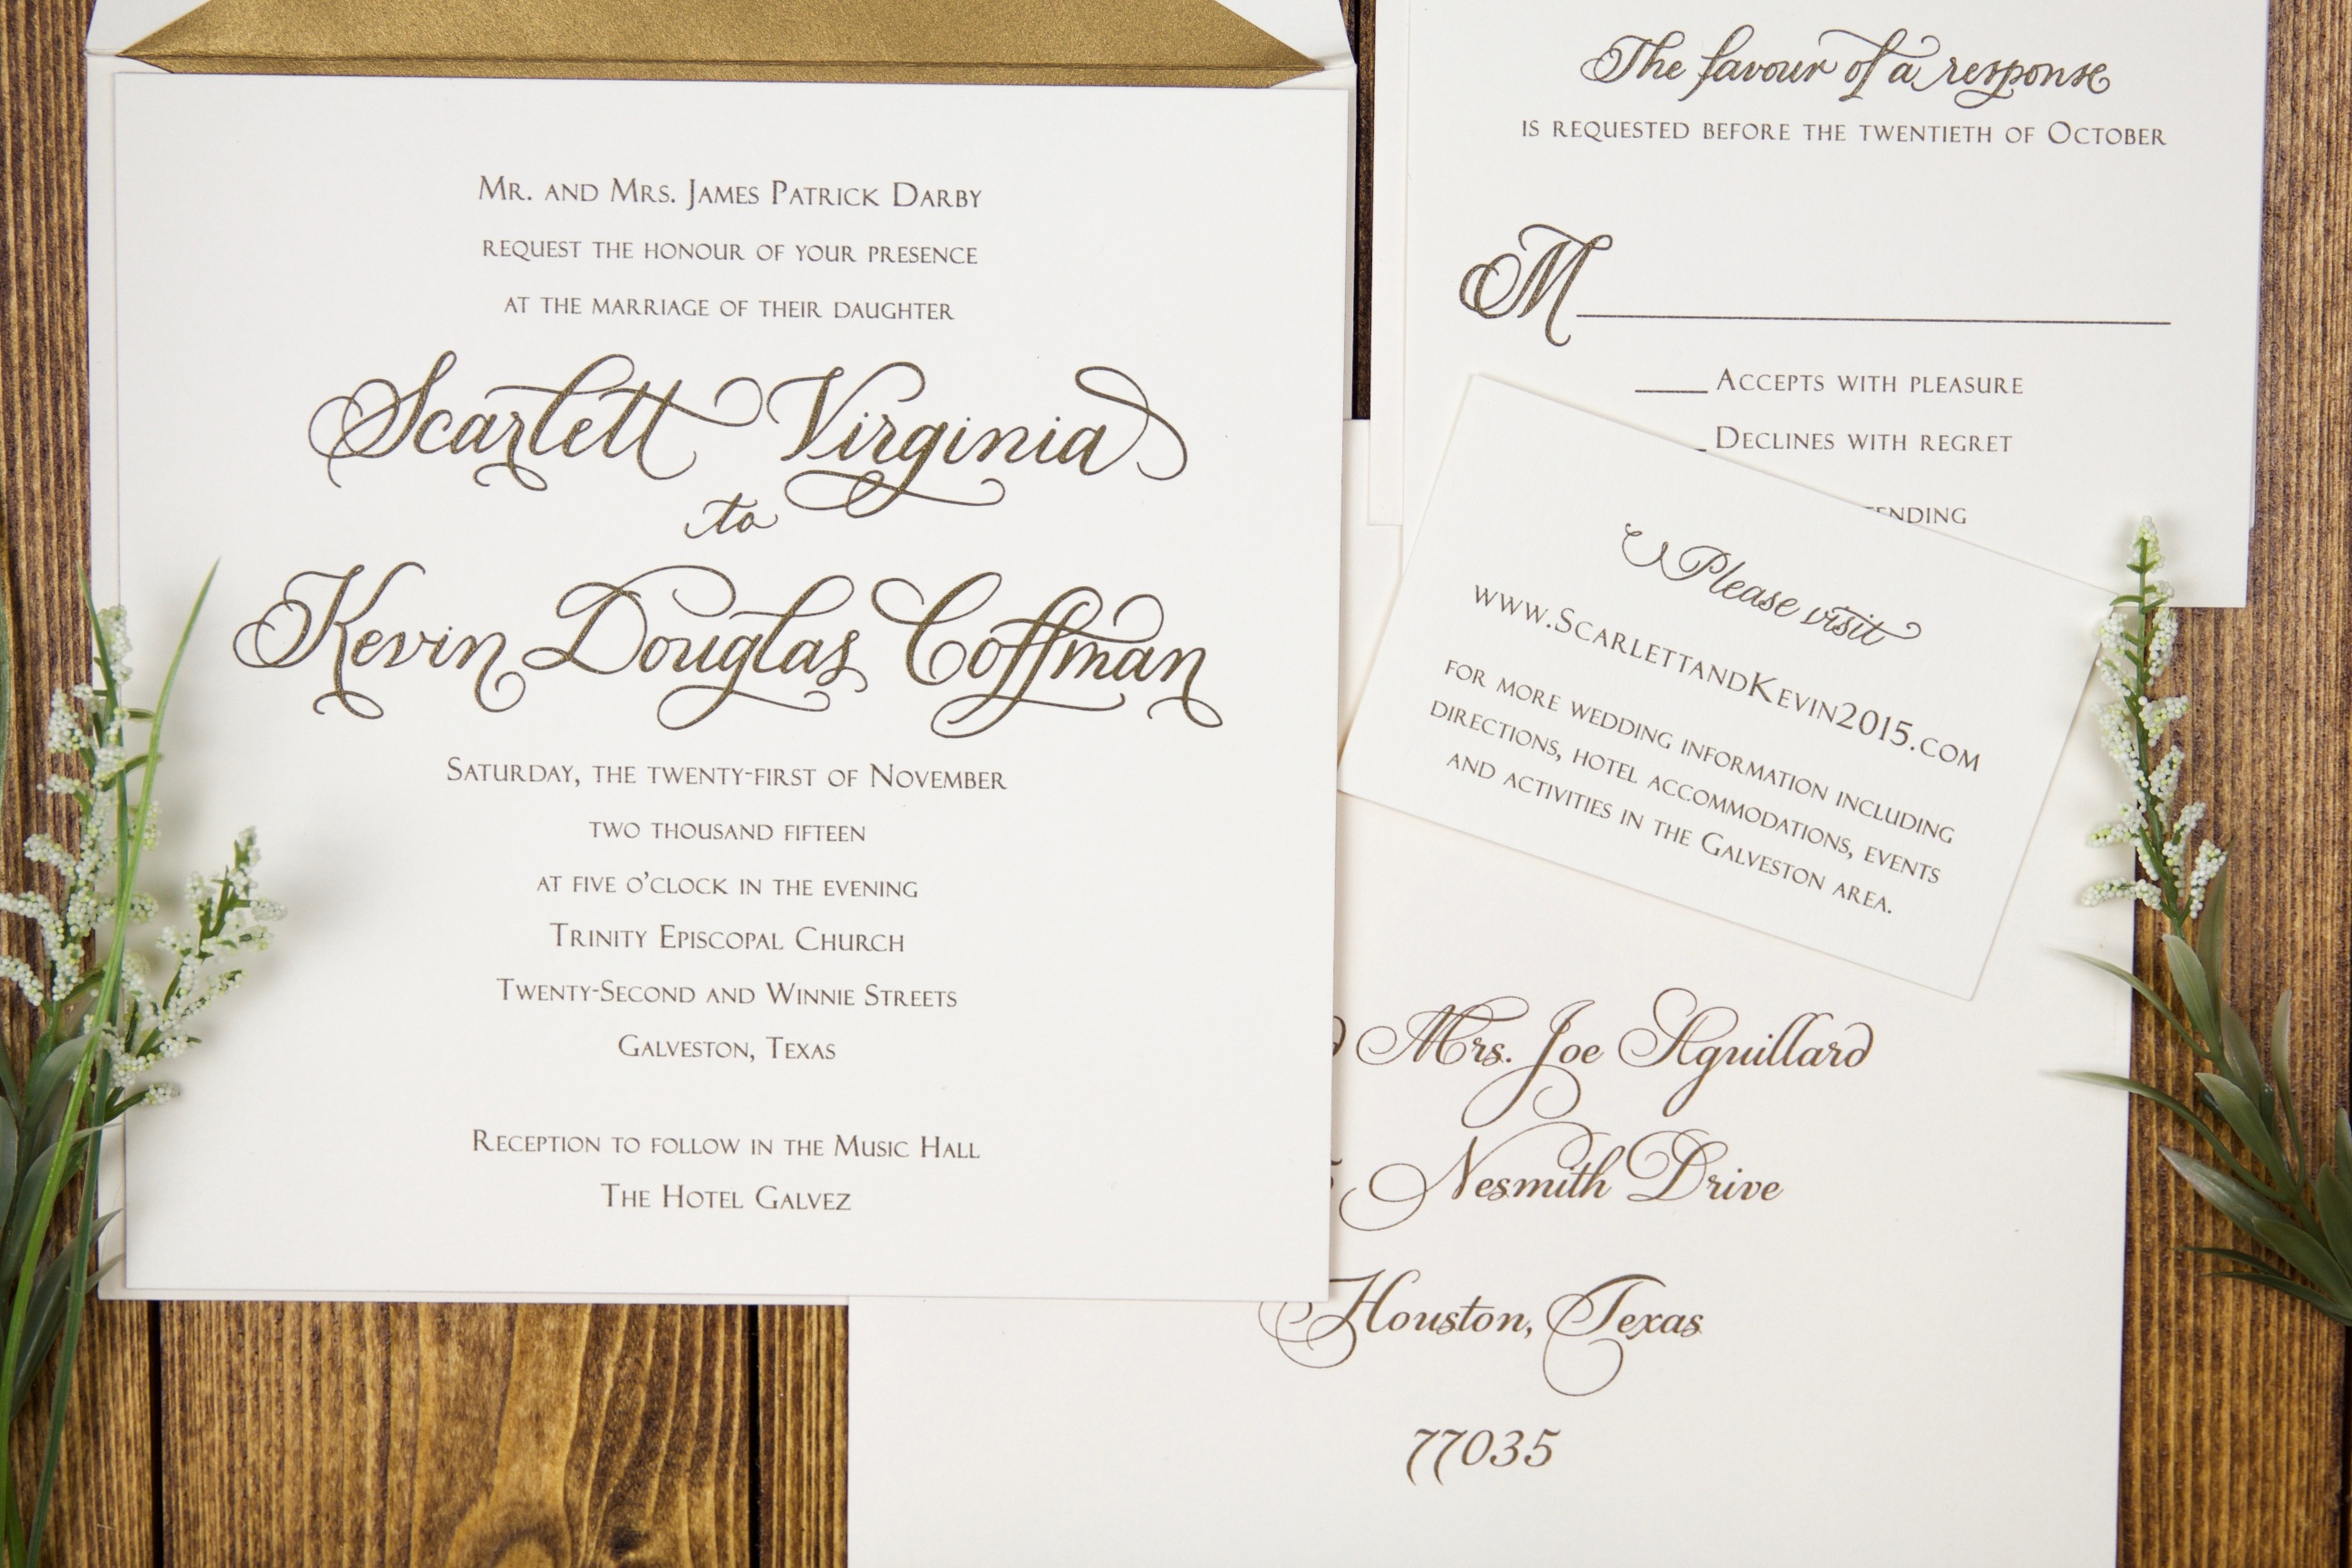 Mr. and Mrs. James Patrick Darby
request the honour of your presence
at the marriage of their daughter
Scarlett Virginia
to
Kevin Douglas Coffman
Saturday, the twenty-first of November
two thousand fifteen
at five o'clock in the evening
Trinity Episcopal Church
Twenty-Second and Winnie Streets
Galveston, Texas
Reception to follow in the Music Hall
The Hotel Galvez
The favour of a response
is requested before the twentieth of October
M
Accepts with pleasure
Declines with regret
Please visit
www.ScarlettandKevin2015.com
for more wedding information including
directions, hotel accommodations, events
and activities in the Galveston area.
Mrs. Joe Aguillard
Nesmith Drive
Houston, Texas
77035